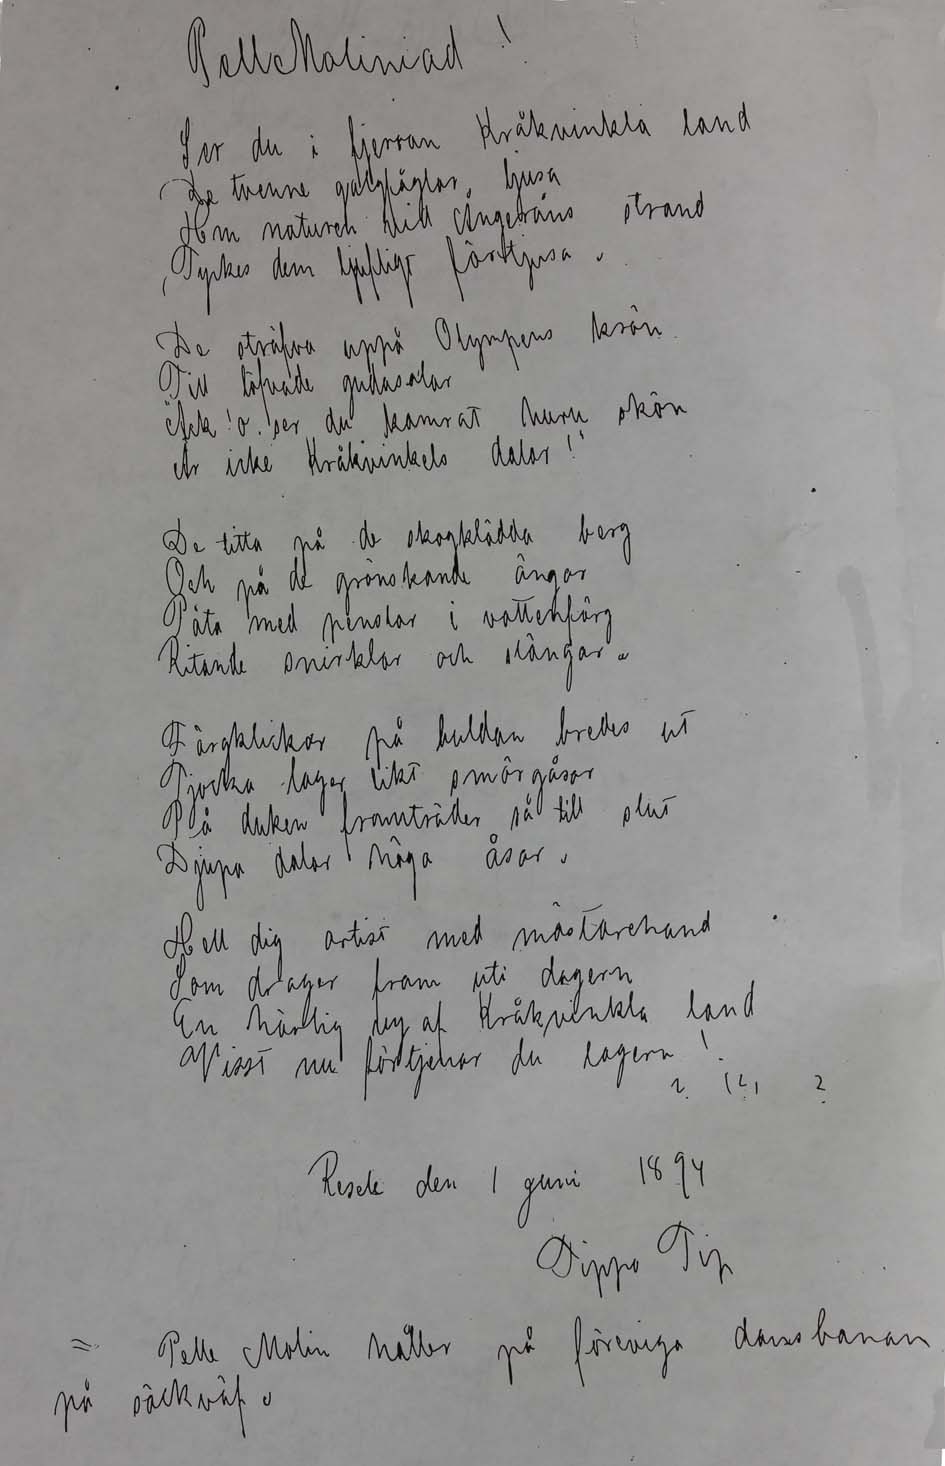 Pelle Moliniad!
Ser du i fjerran Kråkvinkla land
De tvenne galgfåglar, ljusa
Hm naturen vid Ångeråns strand
Tyckes dem ljufligt förtjusa.
De sträfva uppå Olympens krön
Till löfvade gudasalar
"Ack! o. ser du kamrat huru skön
Är icke Kråkvinkels dalar!"
De titta på de skogklädda berg
Och på de grönskande ängar
Påta med penslar i vattenfärg
Ritande snirklar och slängar.
Färgklickar på duldan bredes ut
Tjocka lager likt smörgåsar
På duken framträder så till slut
Djupa dalar höga åsar.
Hell dig artist med mästarehand
Som drager fram uti dagern
En härlig vy af Kråkvinkla land
Visst nu förtjenar du lagern!
? (?) ?
Resele den 1 juni 1894
Tippo Tip
= Pelle Molin håller på föreviga dansbanan
på säckväf.